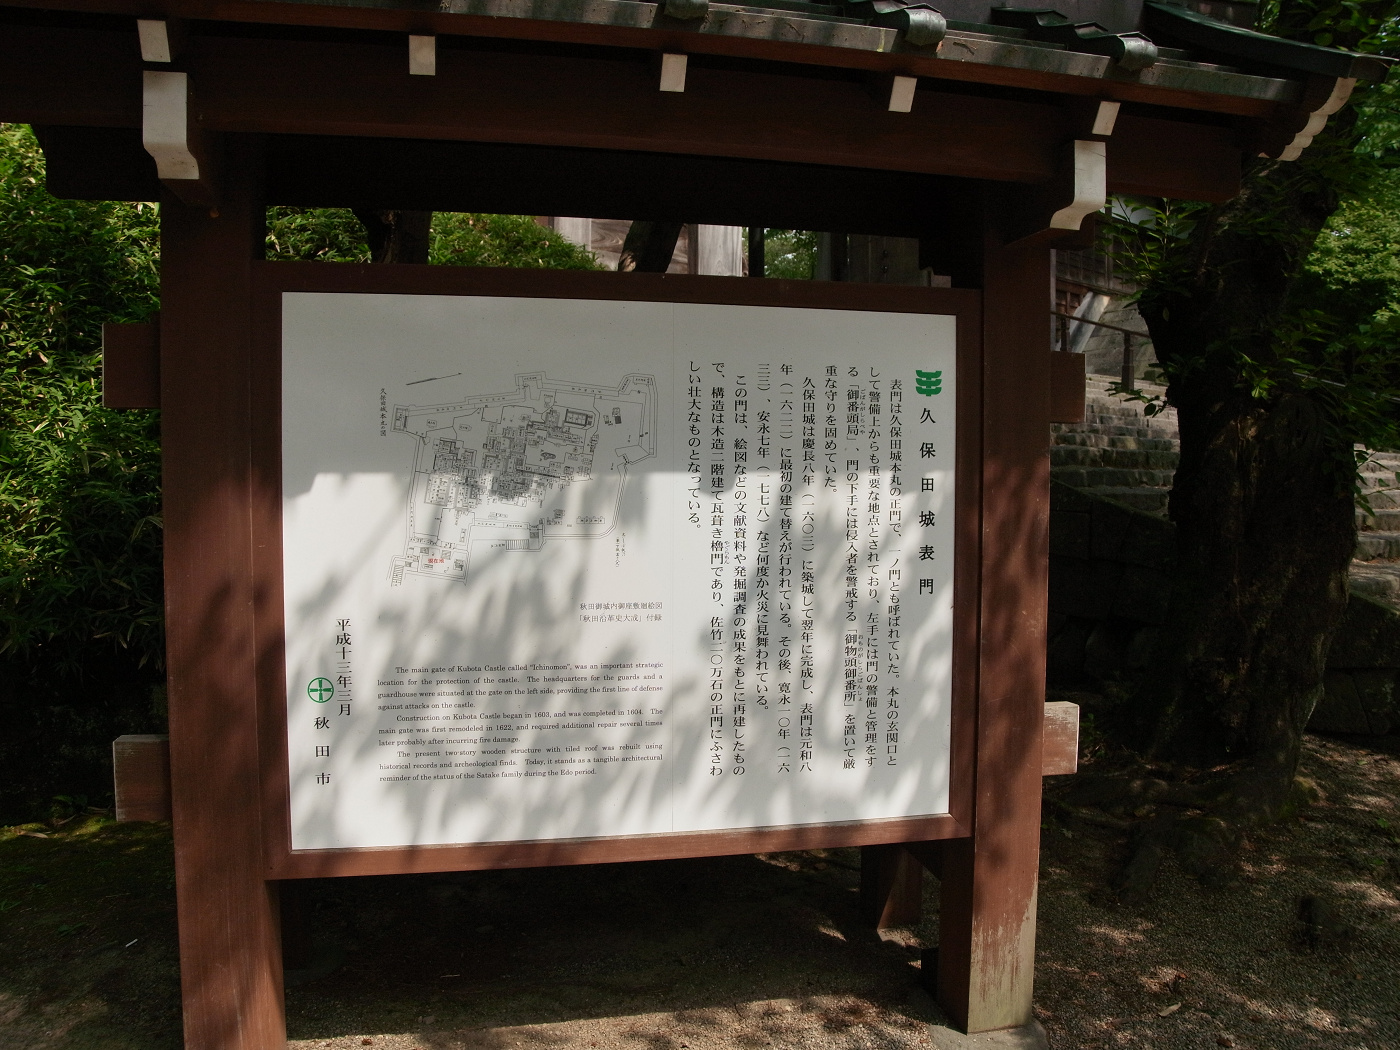 久保田城表門
表門は久保田城本丸の正門で、一ノ門とも呼ばれていた。本丸の玄関口と
して警備上からも重要な地点とされており、左手には門の警備と管理をす
る「御番頭局」、門の下手には侵入者を警戒する「御物頭御番所」を置いて厳
重な守りを固めていた。
久保田城は慶長八年（一六〇三）に築城して翌年に完成し、表門は元和八
年（一六二二）に最初の建て替えが行われている。その後、寛永一〇年（一六
三三）、安永七年（一七七八）など何度か火災に見舞われている。
この門は、絵図などの文献資料や発掘調査の成果をもとに再建したもの
で、構造は木造二階建て瓦葺き櫓門であり、佐竹二〇万石の正門にふさわ
しい壮大なものとなっている。
久保田城本丸の図
現在地
秋田御城内御座敷廻絵図
「秋田沿革史大成」付録
The main gate of Kubota Castle called "Ichinomon", was an important strategic
location for the protection of the castle. The headquarters for the guards and a
guardhouse were situated at the gate on the left side, providing the first line of defense
against attacks on the castle.
Construction on Kubota Castle began in 1603, and was completed in 1604. The
main gate was first remodeled in 1622, and required additional repair several times
later probably after incurring fire damage.
The present two-story wooden structure with tiled roof was rebuilt using
historical records and archeological finds. Today, it stands as a tangible architectural
reminder of the status of the Satake family during the Edo period.
平成十三年三月
秋田市